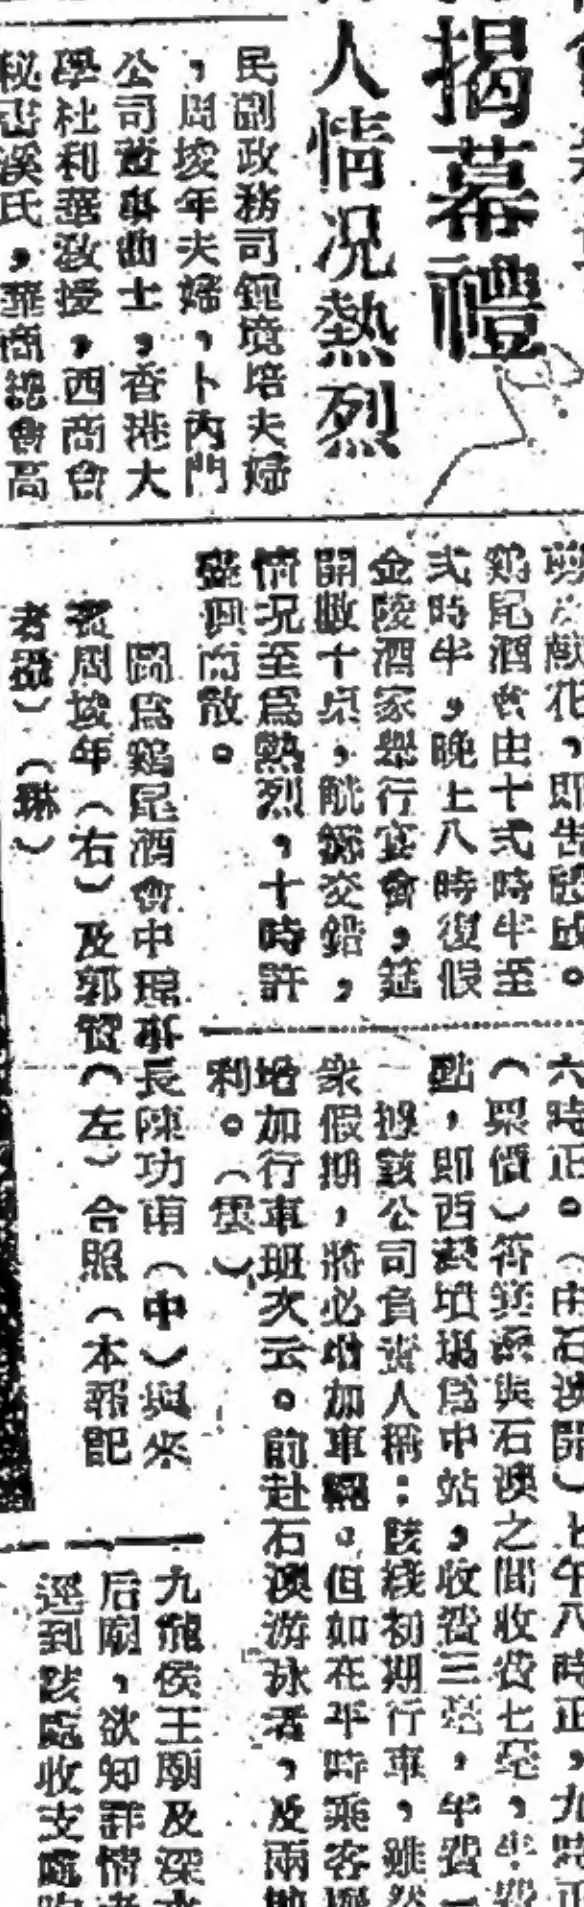 揭幕禮
人情况熱烈
民副政務司鍾境培夫婦
，周埈年夫婦，卜內門
公司董事曲士，香港大
學杜利華教授，西商會
秘書溪氏，華商總會高
献花，即告禮成。
鷄尾酒會由十弍時半至
弍時半，晚上八時復假
金陵酒家舉行宴會，筵
開數十桌，觥籌交錯，
情况至爲熱烈，十時許
盡興而散。
圖爲鷄尾酒會中理事長陳功甫（中）與來
賓周埈年（右）及郭贊（左）合照（本報記
者攝）（琳）
六時正。（由石澳開）上午八時正，九時正
（票價）筲箕灣與石澳之間收費七毫，半費
點，即西灣墳塲爲中站，收費三毫，半費一
據該公司負責人稱：該綫初期行車，雖然
衆假期，將必增加車輛。但如在平時乘客擠
增加行車班次云。前赴石澳游泳者，及兩
利。（雲）
九龍侯王廟及深水
后廟，欲知詳情者
逕到該處收支處